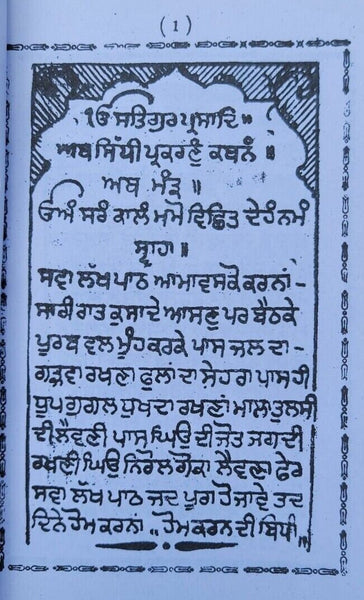 ( 1 )
ੴ ਸਤਿਗੁਰ ਪ੍ਰਸਾਦਿ॥
ਅਥ ਸਿੱਧੀ ਪ੍ਰਕਰਣੰ ਕਥਨੰ
ਅਥ ਮੰਤ੍ਰ ॥
ਓਅੰ ਸਰੰ ਕਾਲੰ ਮਮੋ ਵਿਛਿਤ ਦੇਹੰ ਨਮੰ
ਸ੍ਵਾਹਾ॥
ਸਵਾ ਲੱਖ ਪਾਠ ਆਮਾਵਸਕੋ ਕਰਨਾਂ-
ਸਾਰੀ ਰਾਤ ਕੁਸਾਦੇ ਆਸਣੁ ਪਰ ਬੈਠਕੇ
ਪੂਰਬ ਵਲ ਮੂੰਹ ਕਰਕੇ ਪਾਸ ਜਲ ਦਾ-
ਗੜਵਾ ਰਖਣਾ ਫੁਲਾਂ ਦਾ ਸੇਹਰਾ ਪਾਸ ਹੀ
ਧੂਪ ਗੁਗਲ ਧੁਖਦਾ ਰਖਣਾਂ ਮਾਲਾ ਤੁਲਸੀ
ਦੀ ਲੈਵਣੀ ਪਾਸ ਘਿਉ ਦੀ ਜੋਤ ਜਗਦੀ
ਰਖਣੀ ਘਿਉ ਨਿਰੋਲ ਗੋਕਾ ਲੈਵਣਾ ਫੇਰ
ਸਵਾ ਲੱਖ ਪਾਠ ਜਦ ਪੂਗ ਹੋ ਜਾਵੇ ਤਦ
ਦਿਨੇ ਹੋਮ ਕਰਨਾਂ ,, ਹੋਮ ਕਰਨ ਦੀ ਬਿਧੀ॥